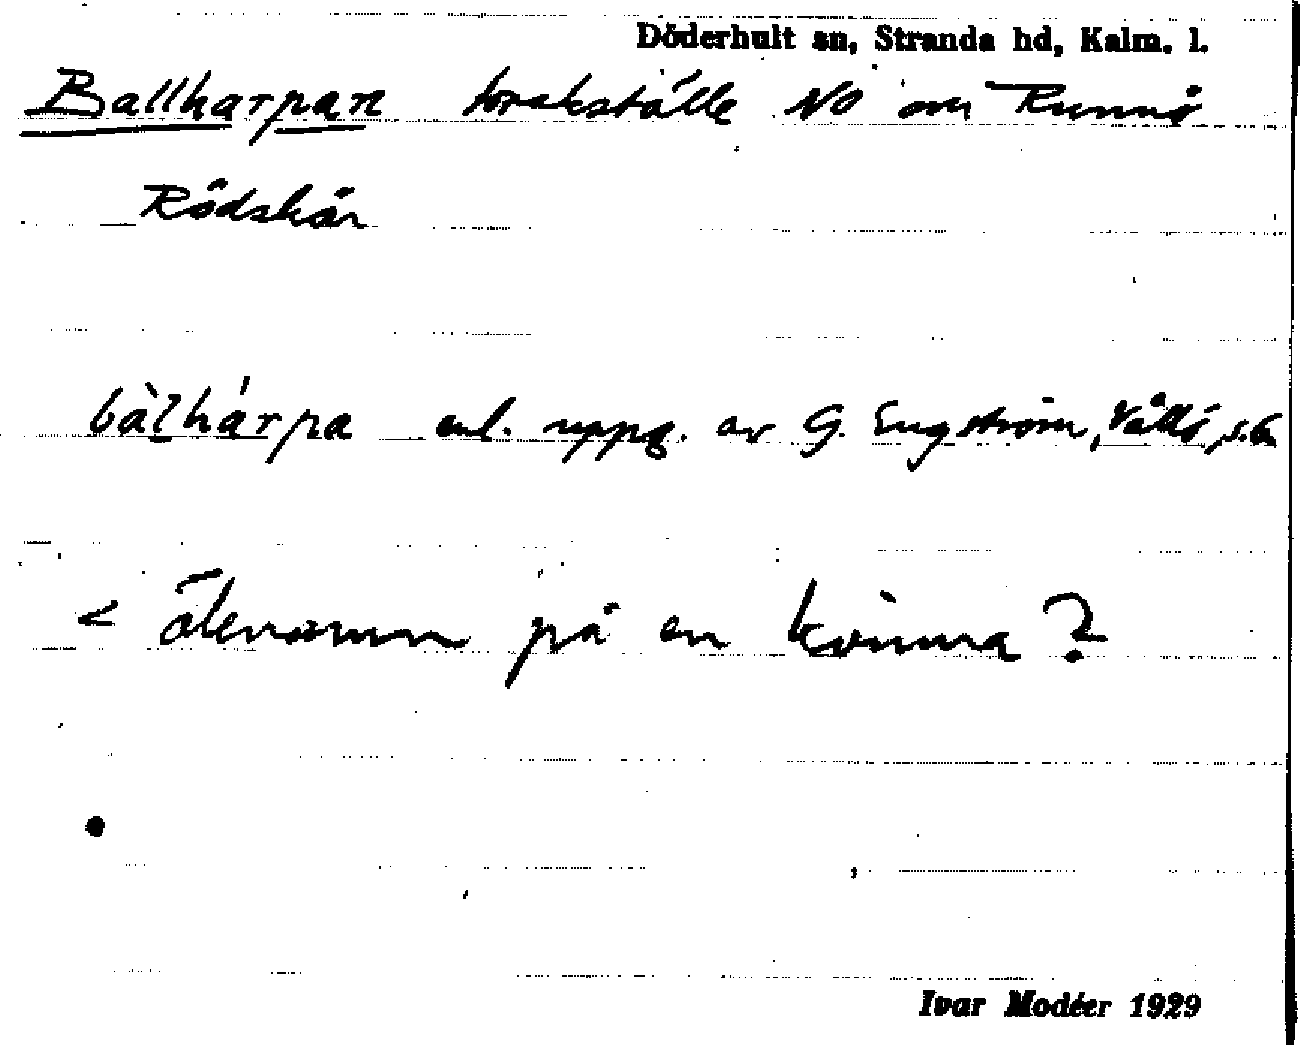 Döderhult sn, Stranda hd, Kalm. l.
Ballharpan torskställe NO om Runnö
Rödskär
bàlhárpa enl. uppg. av G. Engström, Vållö, s.sn
< öknamn på en kvinna?
Ivar Modéer 1929